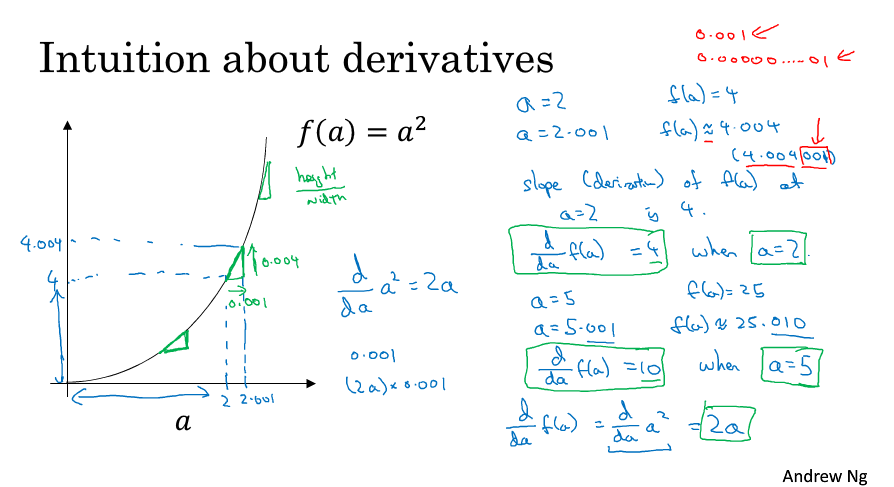 Intuition about derivatives
0.001
0.00000.....01
f(a) = a²
height
width
4.004
4
0.004
0.001
2 2.001
a
d/da a² = 2a
0.001
(2a) × 0.001
a = 2 f(a) = 4
a = 2.001 f(a) ≈ 4.004
(4.004001)
slope (derivative) of f(a) at
a = 2 is 4.
d/da f(a) = 4 when a = 2.
a = 5 f(a) = 25
a = 5.001 f(a) ≈ 25.010
d/da f(a) = 10 when a = 5
d/da f(a) = d/da a² = 2a
Andrew Ng